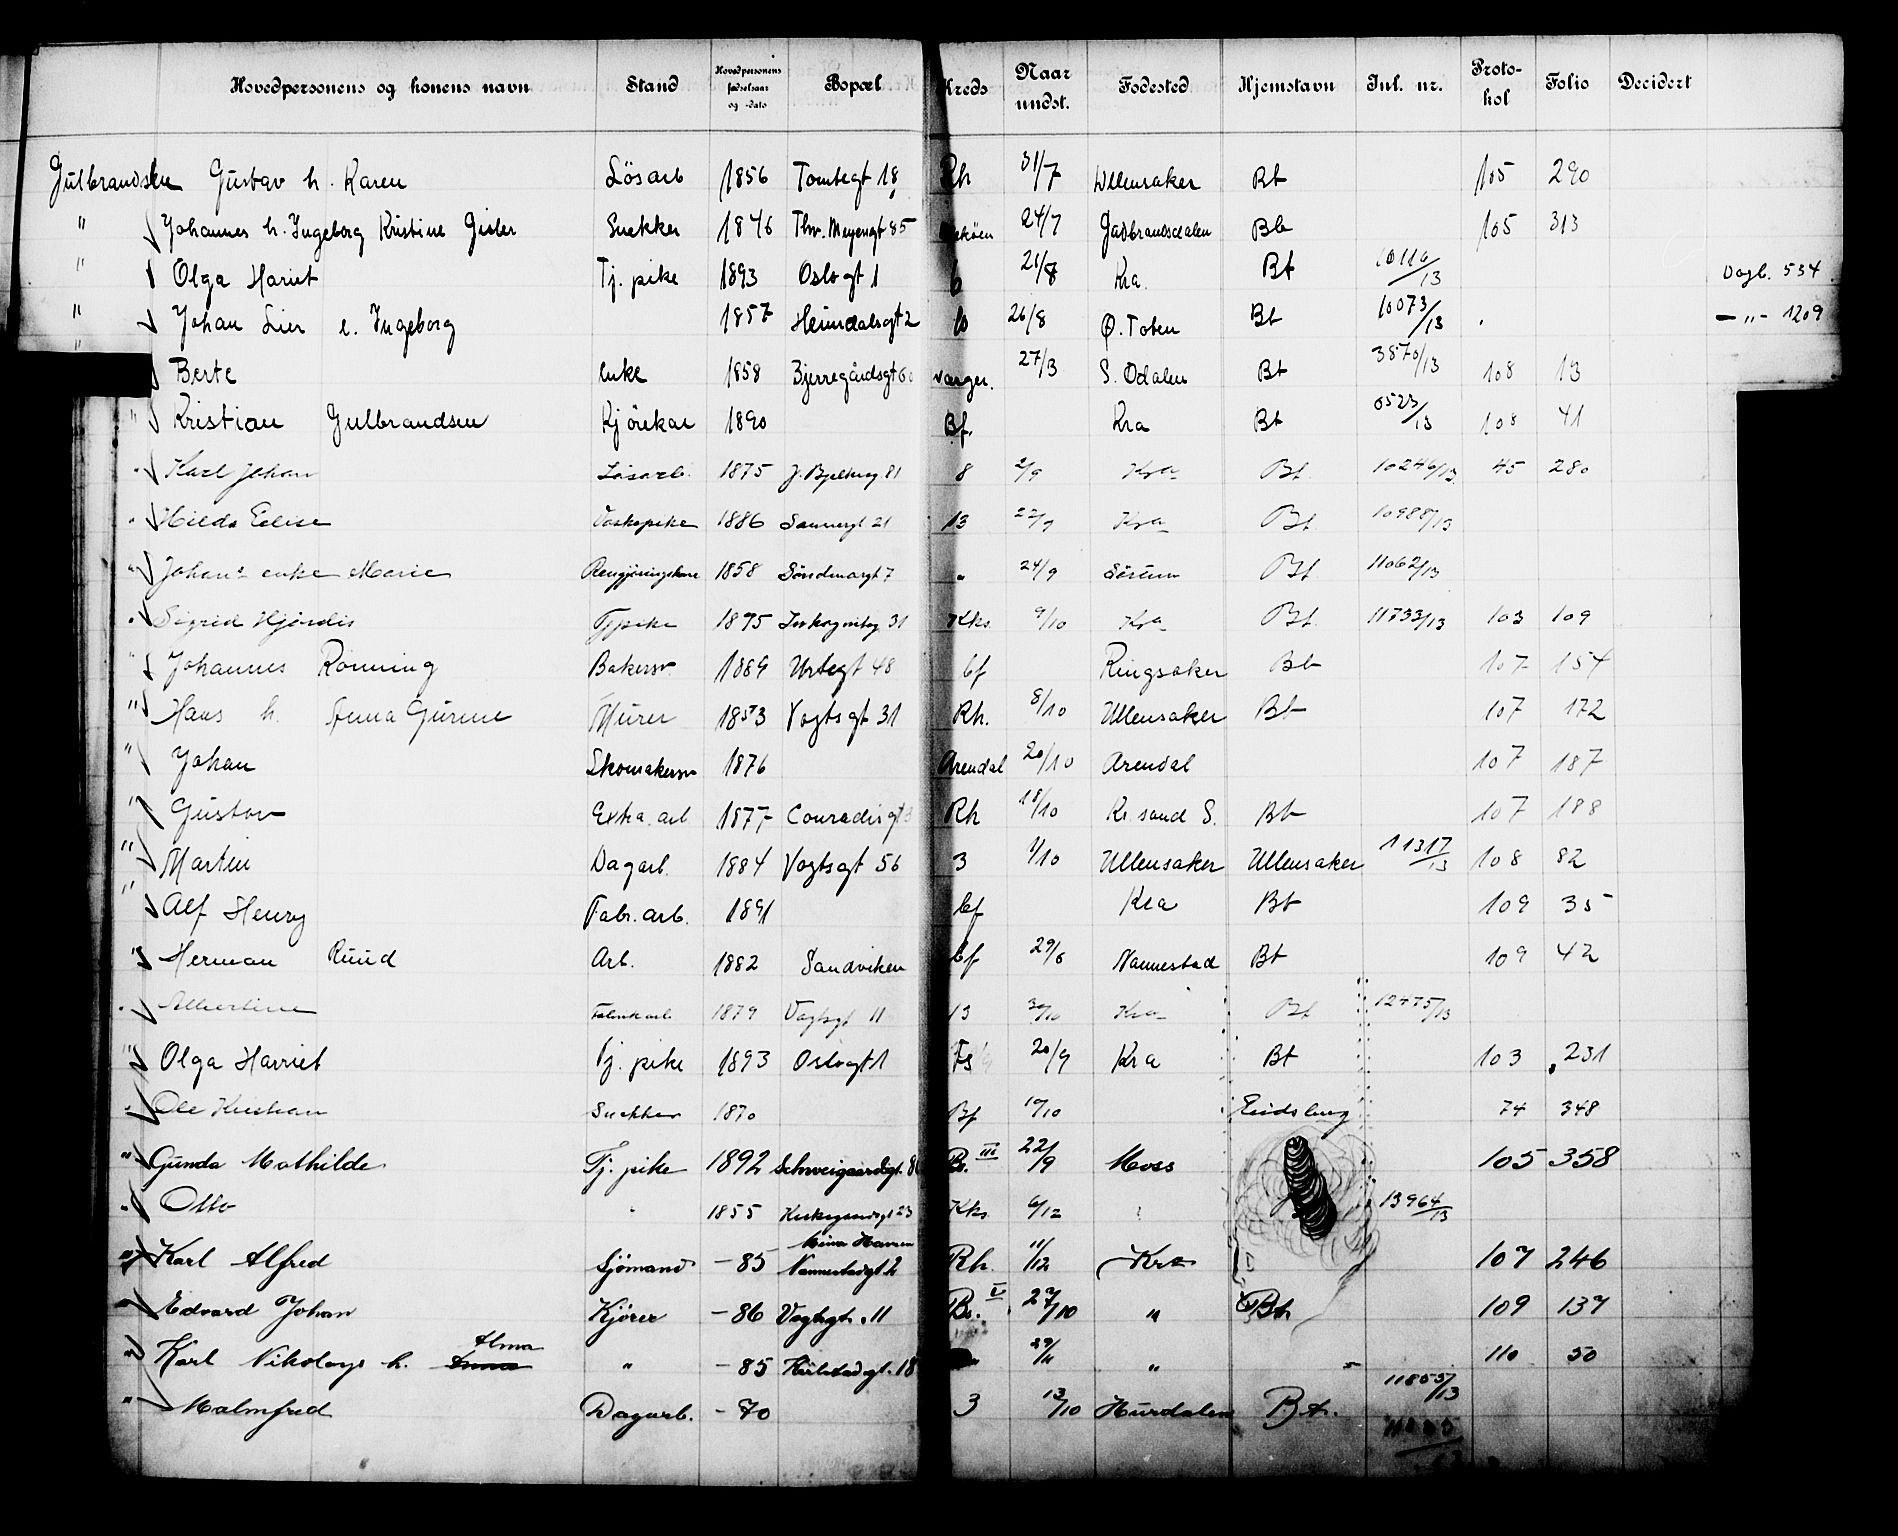 Hovedpersonens og konens navn Stand Hovedpersonens fødselsaar og -dato Bopæl Kreds Naar undst. Fødested Hjemstavn Jnl. nr. Protokol Folio Decidert
Gulbrandsen Gustav h. Karen Lösarb 1856 Tomtegt 18 Rh 31/7 Ullensaker Bt 105 290
" Johannes h. Ingeborg Kristine Gisler Snekker 1846 Thv. Meyersgt 85 24/7 Gudbrandsdalen Bt 105 313
" Olga Hariet Tj. pike 1893 Oslogt 1 6 21/8 Kra. Bt 10110/13 Dagb. 534
" Johan Lier e. Ingeborg 1857 Heimdalsgt 2 10 26/8 Ø. Toten Bt 10073/13 - " - 1209
" Berte Enke 1858 Bjerregårdsgt 60 Varger. 27/3 S. Odalen Bt 3870/13 108 13
" Kristian Gulbrandsen Kjörekar 1890 Bf. Kra Bt 6523/13 108 41
" Karl Johan Løsarb. 1875 J. Bjelkesg. 81 8 2/9 Kra Bt. 10246/13 45 280
" Hilda Elise Vaskepike 1886 Sannergt 21 13 22/9 Kra Bt. 10988/13
" Johans enke Marie Rengjøringskone 1858 Søndmørgt 7 " 24/9 Sørum Bt 11062/13
" Sigrid Hjördis Tjpike 1895 31 Kks. 9/10 Kra Bt 11733/13 103 109
" Johannes Rönning Bakersv. 1889 Urtegt 48 bf Ringsaker Bt 107 154
" Hans h. Anna Gurine Murer 1853 Vogtsgt 31 Rh. 8/10 Ullensaker Bt 107 172
" Johan Skomakersv 1876 Arendal 20/10 Arendal 107 187
" Gustav Extra. arb 1877 Conradisgt 3 Rh 18/10 Kr. sand S. Bt 107 188
" Martin Dagarb. 1884 Vogtsgt 56 3 1/10 Ullensaker Ullensaker 11317/13 108 82
" Alf Henry Fabr. arb. 1891 bf Kra Bt 109 35
" Herman Ruud Arb. 1882 Sandviken bf 29/6 Nannestad Bt 109 42
" Albertine Fabrikarb. 1879 Vogtsgt 11 13 30/10 Kra Bt 12475/13
" Olga Harriet Tj. pike 1893 Oslogt 1 Fs 20/9 Kra Bt 103 231
" Ole Kristian Snekker 1870 Bf 10/10 Eidsberg 74 348
" Gunda Mathilde Tj. pike 1892 Schweigaardsgt. 8 Bs. III 22/9 Moss 105 358
" Otto " 1855 Kirkegaardsgt 23 Kks 6/12 13964/13
Mina Hansen
" Karl Alfred Sjömand - 85 Nannestadgt 2 Rh. 11/12 Kra 107 246
" Edvard Johan Kjörer - 86 Vogtsgt. 11 Bs. V 27/10 " Bt. 109 137
Alma
" Karl Nikolay h. " - 85 18 29/11 " 110 50
" Malmfred Dagarb. - 70 3 13/10 Hurdalen Bt. 11855/13